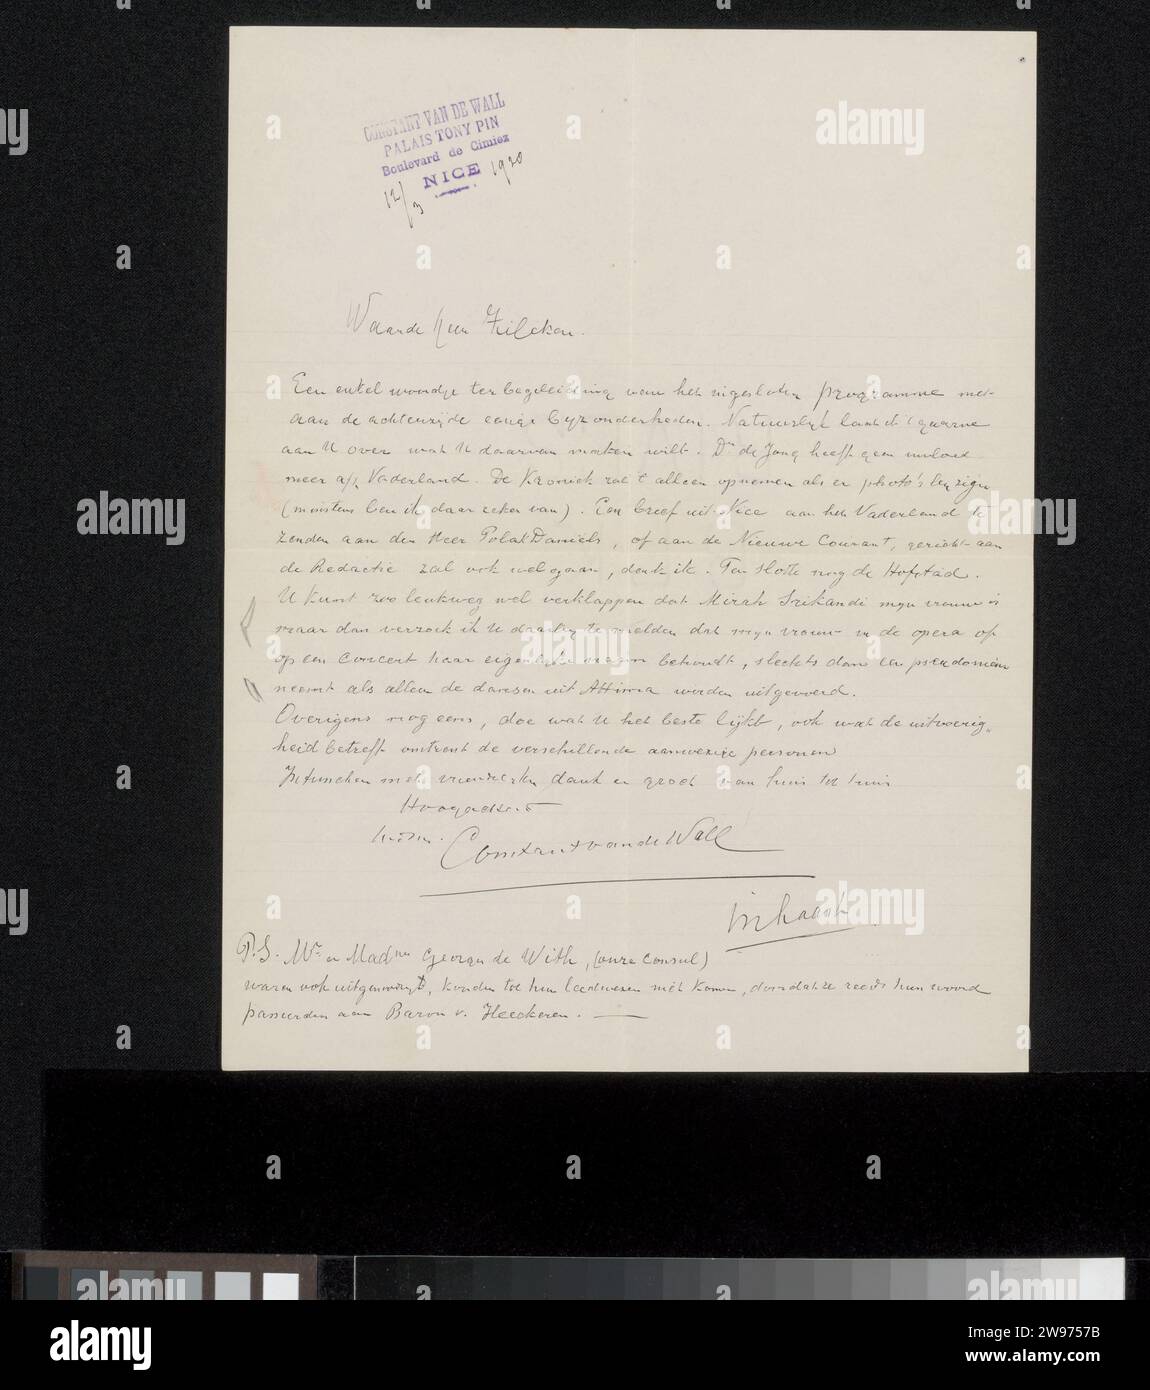 CONSTANT VAN DE WALL
PALAIS TONY PIN
Boulevard de Cimiez
NICE
12/3 1920
Waarde Heer Zilcken.
Een enkel woordje ter begeleiding van het ingesloten programme met
aan de achterzijde eenige byzonderheden. Natuurlyk laat ik 't gaarne
aan U over wat U daarvan maken wilt. Dr de Jong heeft geen invloed
meer a/h Vaderland. De Kroniek zal 't alleen opnemen als er photo's by zyn
(minstens ben ik daar zeker van). Een brief uit Nice aan het Vaderland te
zenden aan den Heer Polak Daniels, of aan de Nieuwe Courant, gericht aan
de Redactie zal ook wel gaan, denk ik. Ten slotte nog de Hofstad.
U kunt zoo leukweg wel verklappen dat Mirah Srikandi myn vrouw is
maar dan verzoek ik U daarby te melden dat myn vrouw in de opera of
op een concert haar eigenlyke naam behoudt, slechts dan een pseudoniem
neemt als alleen de dansen uit Attima worden uitgevoerd.
Overigens nog eens, doe wat U het beste lykt, ook wat de uitvoerig-
heid betreft omtrent de verschillende aanwezige personen
Intusschen met vriendelyken dank en groet van huis tot huis
Hoogachtend
Constant van de Wall
P.S. Mr en Madme George de With, (onze consul)
waren ook uitgenoodigd, konden tot hun leedwezen niet komen, doordat ze reeds hun woord
passeerden aan Baron v. Heeckeren.
alamy
alamy
alamy
alamy
alamy
alamy
alamy
alamy
alamy
Image ID: 2W9757B
www.alamy.com